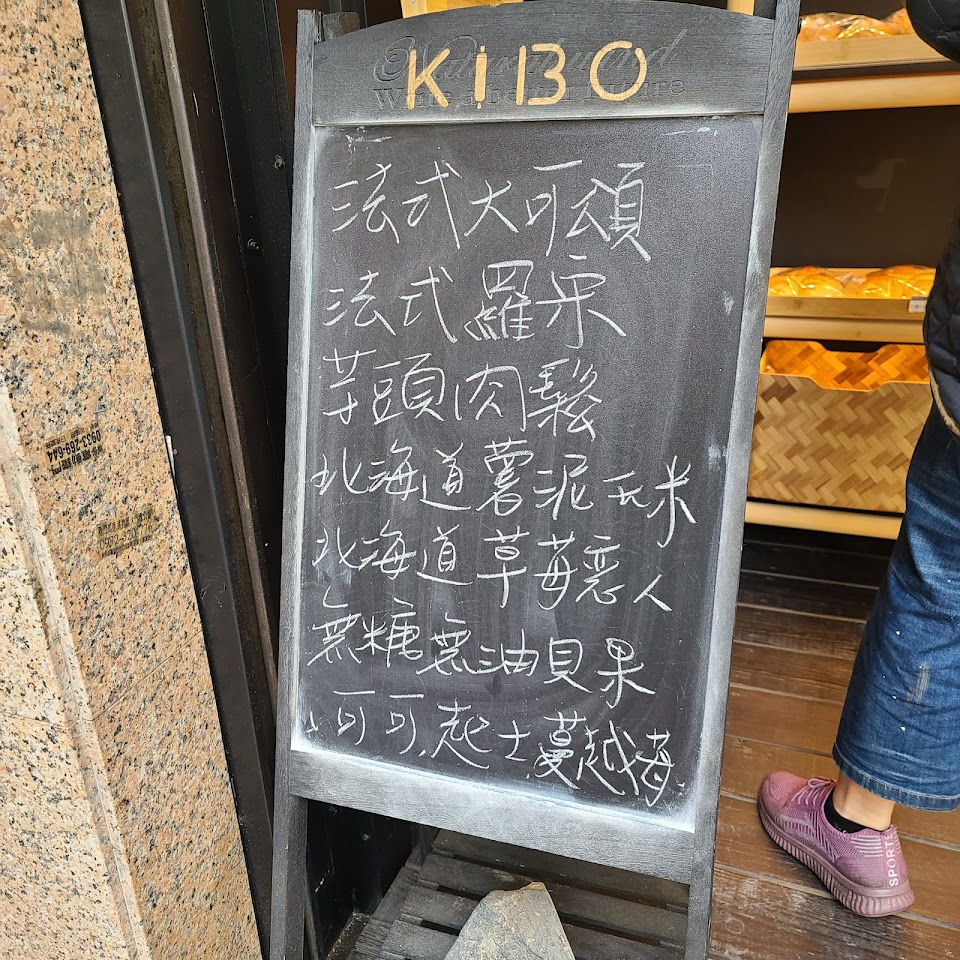 KiBO
法式大可頌
法式羅宋
芋頭肉鬆
北海道薯泥玉米
北海道草莓戀人
無糖無油貝果
可可.起士.蔓越莓
0933-269-644
SPORTS